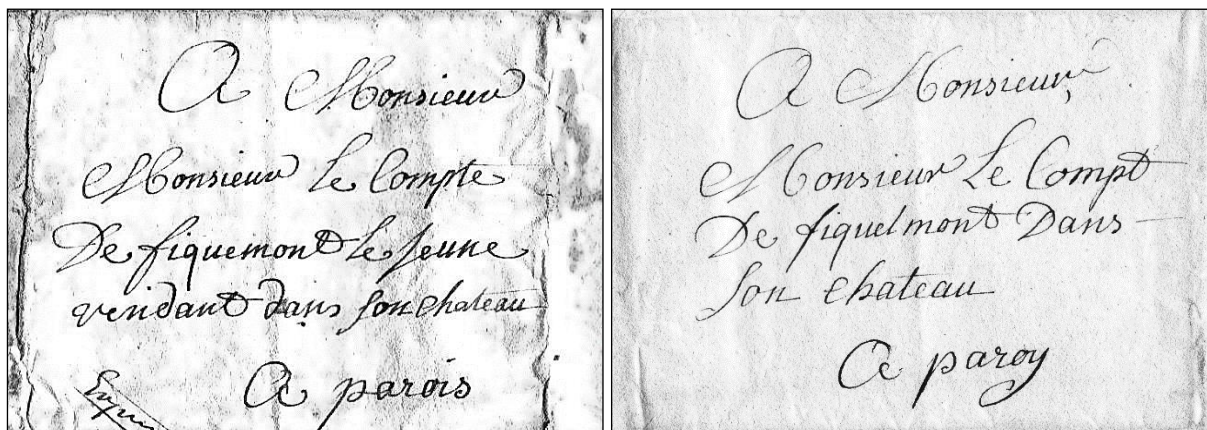 A Monsieur
Monsieur Le Compte
De fiquemont Le Jeune
rendant dans son chateau
A parois
A Monsieur,
Monsieur Le Compt
De fiquelmont Dans
son chateau
A paroy